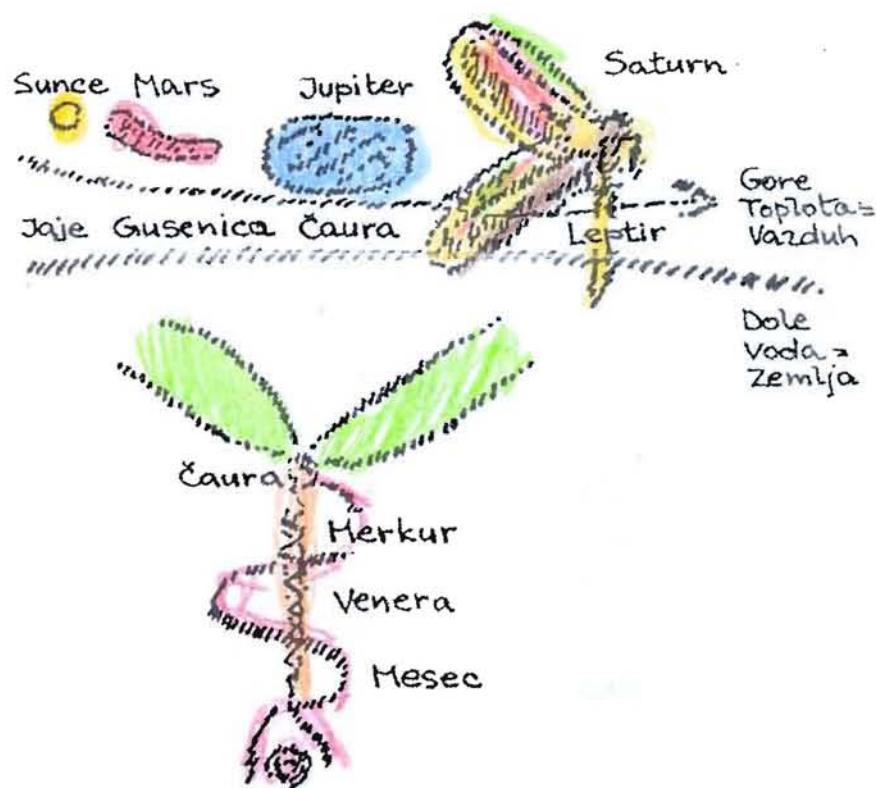 Sunce Mars Jupiter Saturn
Jaje Gusenica Čaura Leptir
Gore
Toplota=
Vazduh
Dole
Voda=
Zemlja
Čaura
Merkur
Venera
Mesec